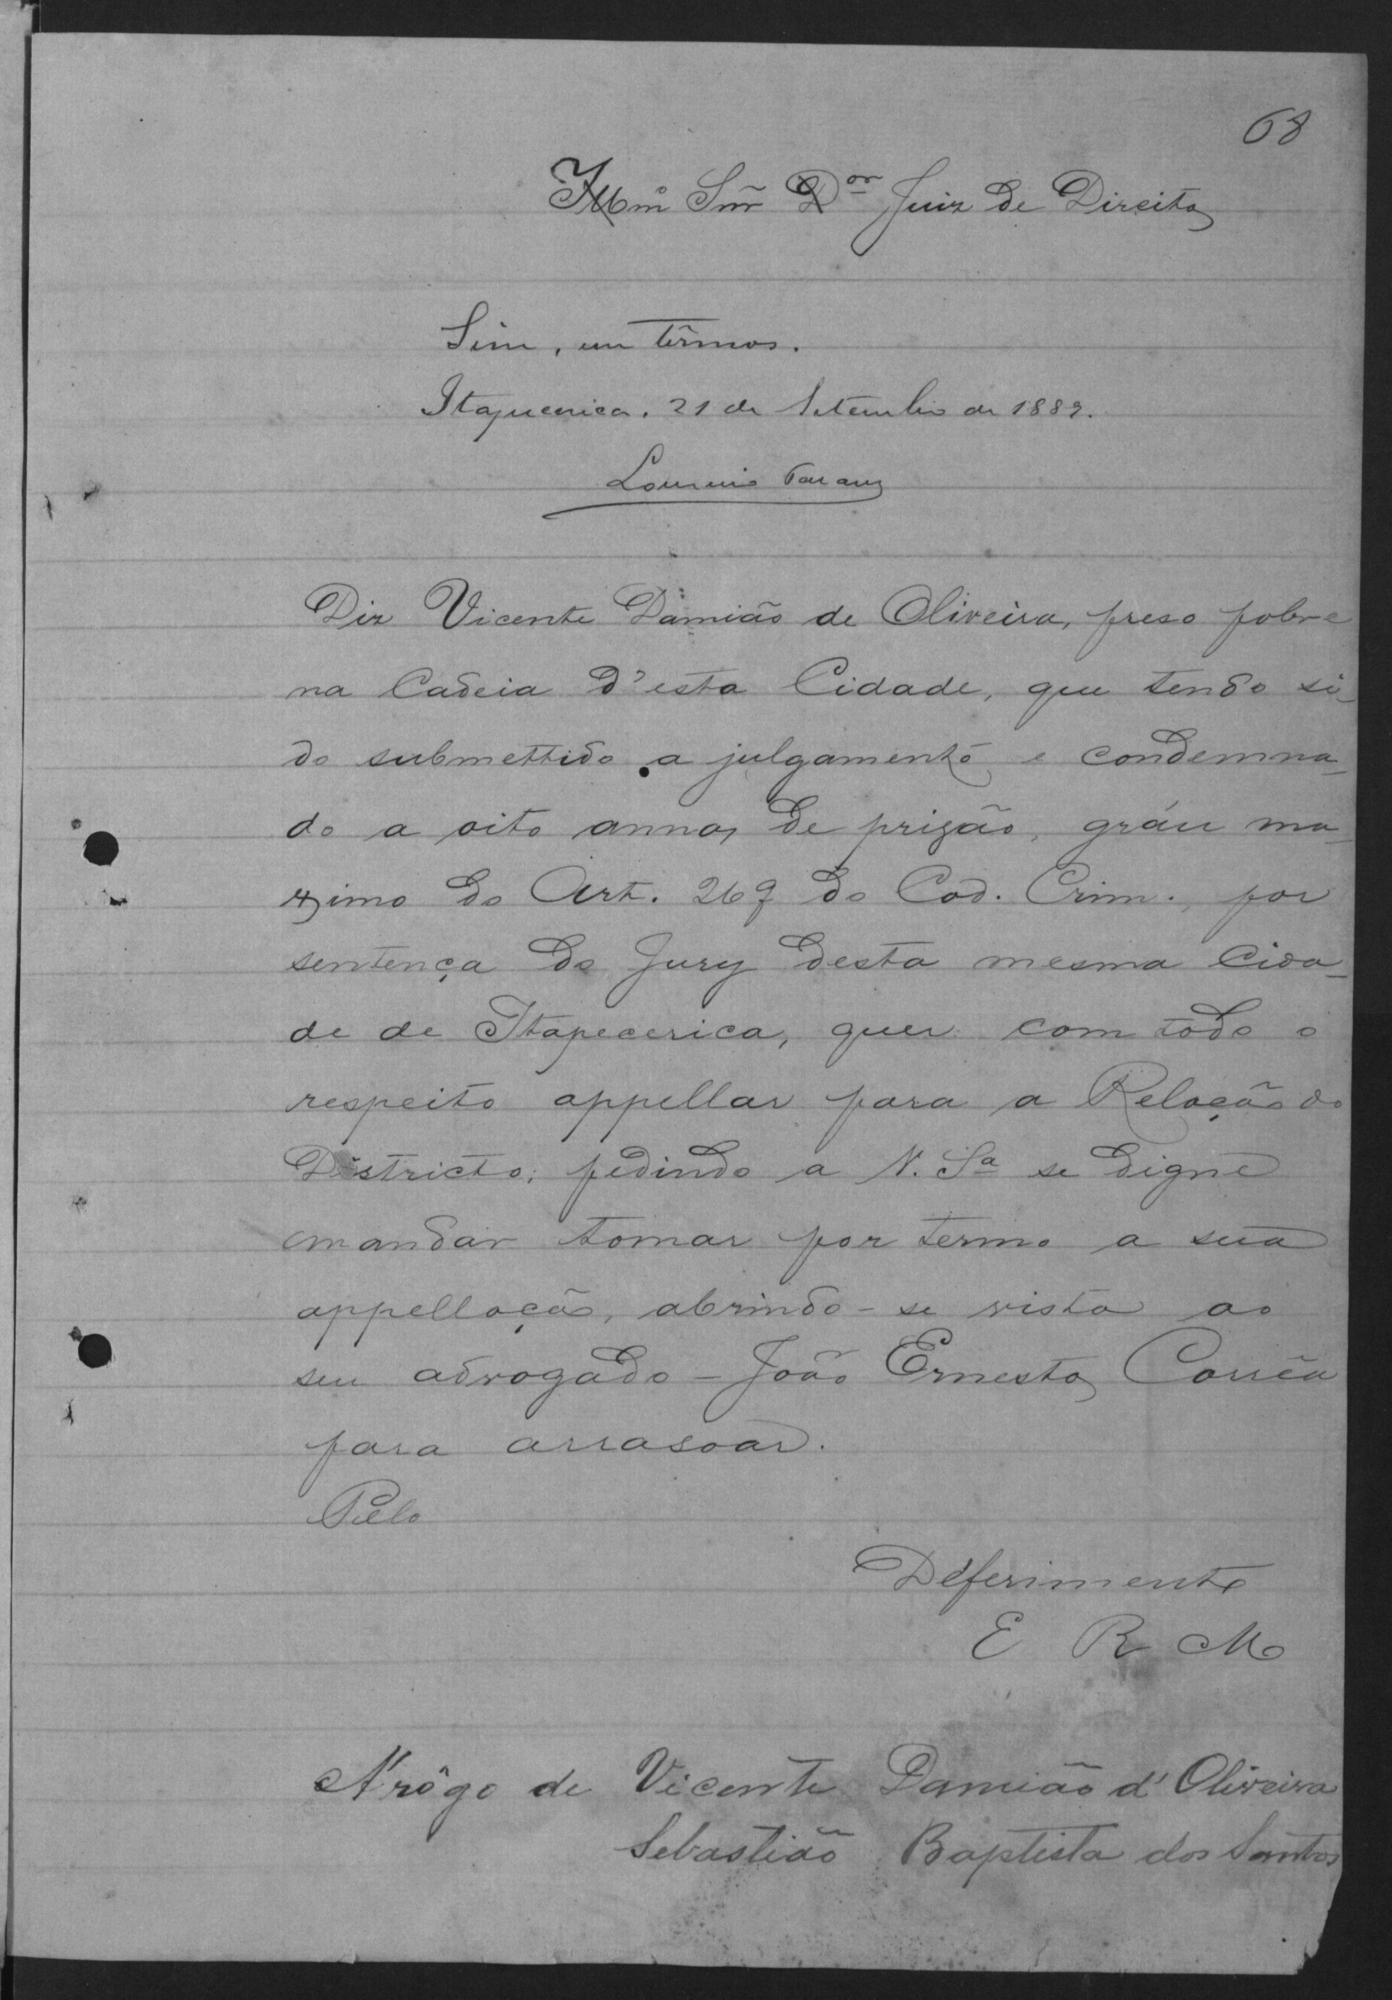 68
Illmº Snr Dor Juiz de Direito
Sim, em têrmos.
Itapecerica, 21 de Setembro de 1889.
Diz Vicente Damião de Oliveira, preso pobre
na Cadeia d'esta Cidade, que tendo si-
do submettido a julgamento e condemna-
do a oito annos de prizão, gráu ma-
ximo do Art. 269 do Cod. Crim., por
sentença do Jury desta mesma Cida-
de de Itapecerica, quer com todo o
respeito appellar para a Relação do
Districto; pedindo a V. Sª se digne
mandar tomar por termo a sua
appellação, abrindo-se vista ao
seu advogado - João Ernesto Corrêa
para arrasoar.
P.
Deferimento
E R M
A rôgo de Vicente Damião d'Oliveira
Sebastião Baptista dos Santos